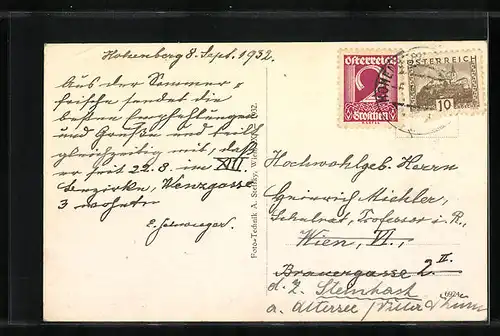 Hohenberg 8. Sept. 1932.
Aus der Sommer-
frische sendet die
besten Empfehlungen
und Grüße und teilt
gleichzeitig mit, daß
er seit 22. 8. im XIII.
Bezirke, Wenzgasse
3 wohnt.
Foto-Technik A. Stefsky, Wien
Österreich
2
Groschen
ÖSTERREICH
10
Hochwohlgeb. Herrn
Heinrich Michler,
Schulrat, Professor i. R.,
Wien, VI.,
Brauergasse 2 II.
d. Z. Steinbach
a. Attersee